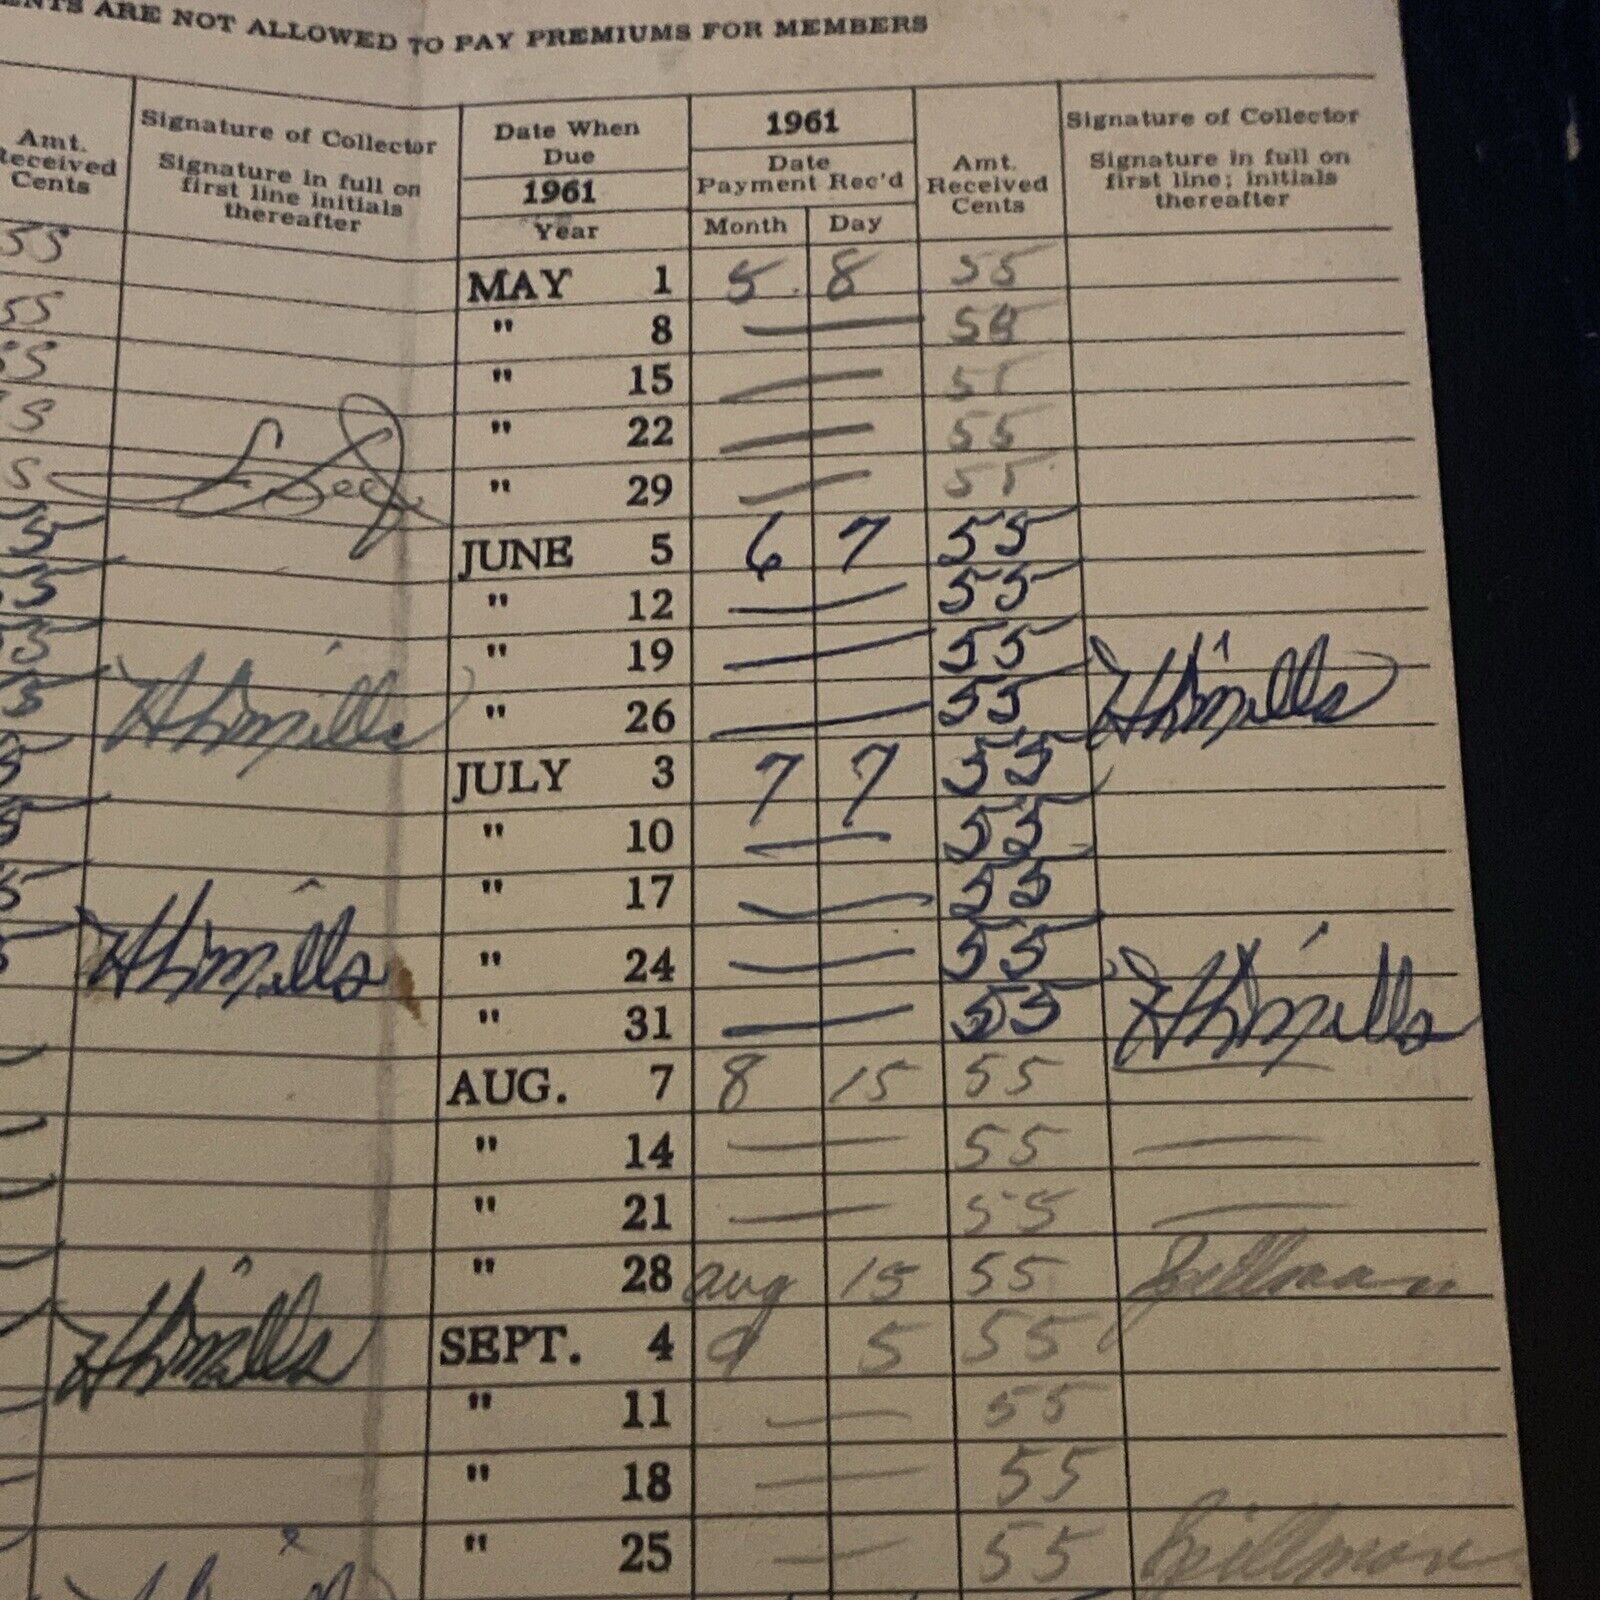 ENTS ARE NOT ALLOWED TO PAY PREMIUMS FOR MEMBERS
Amt. Received Cents
Signature of Collector
Signature in full on first line initials thereafter
Date When Due
1961
Year
1961
Date Payment Rec'd
Month Day
Amt. Received Cents
Signature of Collector
Signature in full on first line; initials thereafter
55 MAY 1 5 8 55
55 " 8 — 55
55 " 15 — 55
5 " 22 — 55
5 " 29 — 55
55 JUNE 5 6 7 55
55 " 12 — 55
55 " 19 — 55
55 HLMills " 26 — 55 HLMills
5 JULY 3 7 7 55
5 " 10 — 55
5 " 17 — 55
5 HLMills " 24 — 55
" 31 — 55 HLMills
AUG. 7 8 15 55
" 14 — 55 —
" 21 — 55 —
" 28 aug 15 55 Spillman
HLMills SEPT. 4 9 5 55
" 11 — 55
" 18 — 55
" 25 — 55 Spillman